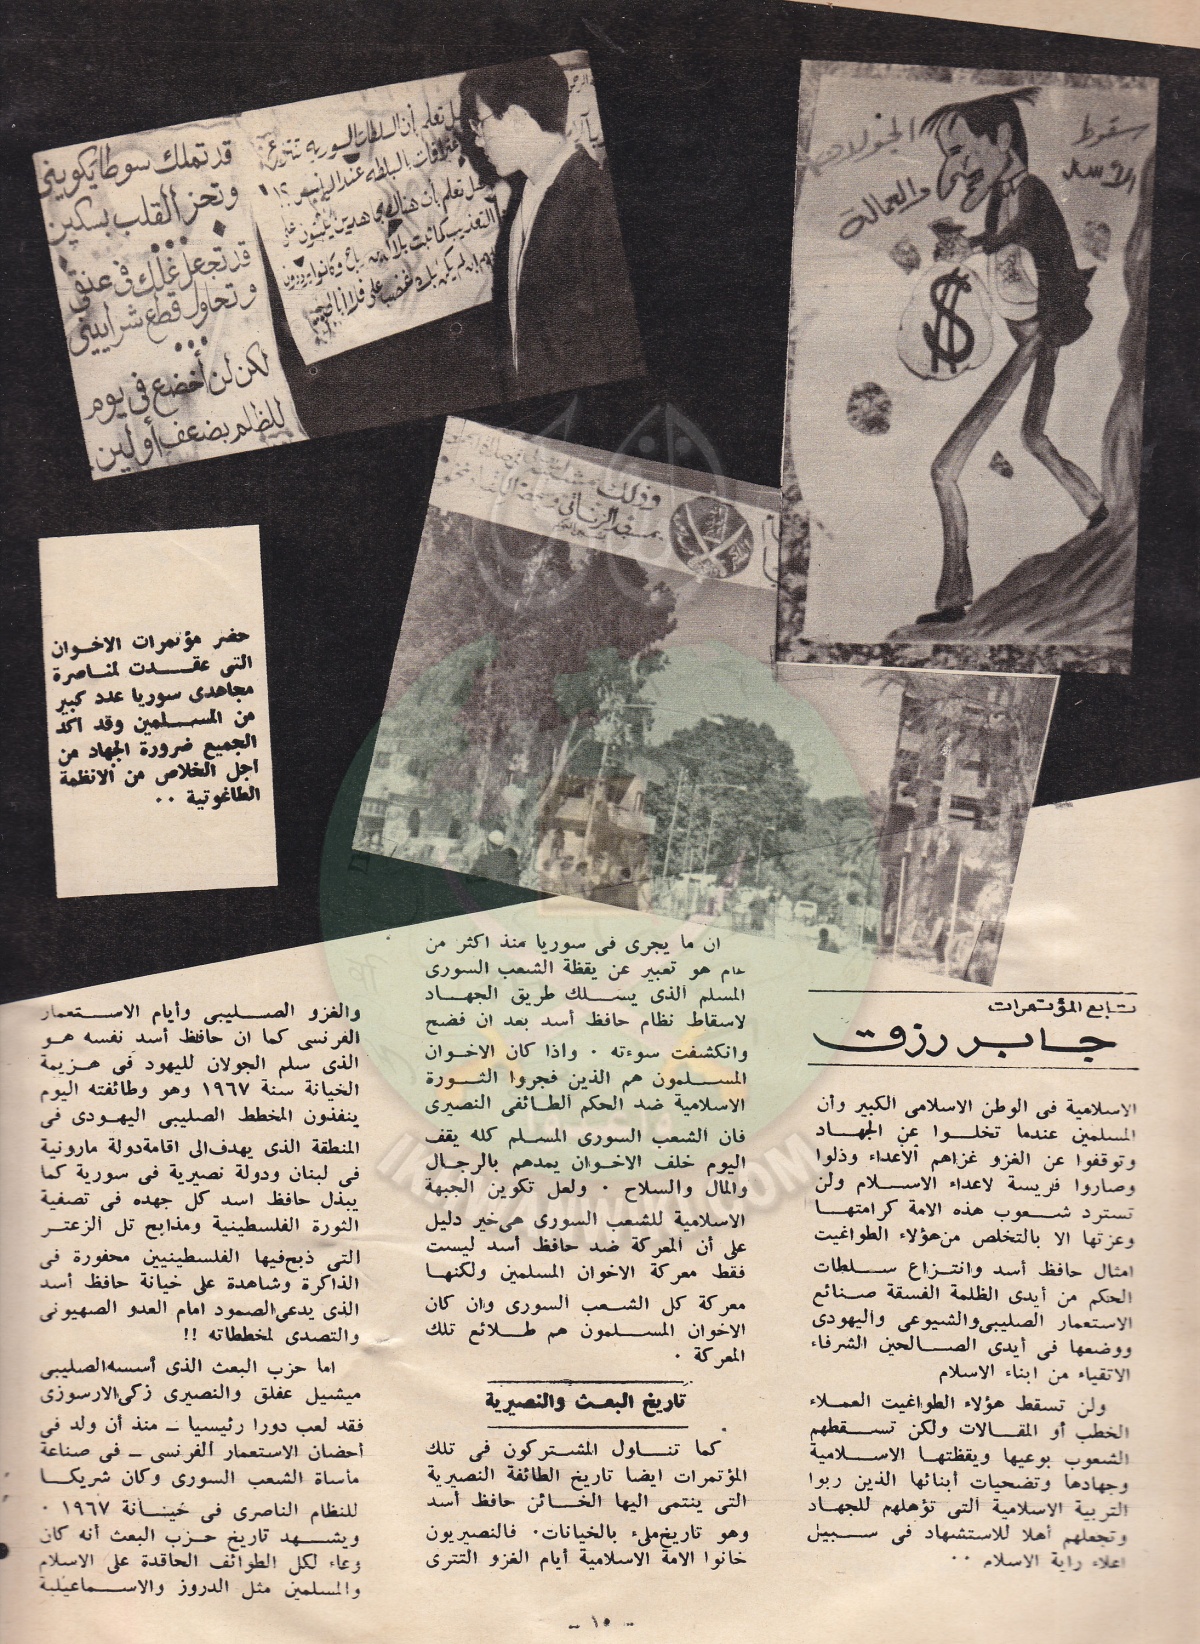 قد تملك سوطا يكويني
وتحز القلب بسكين
قد تجعل غلك في عنقي
وتحاول قطع شراييني
لكن لن أخضع في يوم
للظلم بضعف أولين
تعلم أن السلطات السورية تنتزع
سقوط
الأسد
الجولان
والعمالة
$
وذلك
حضر مؤتمرات الاخوان
التى عقدت لمناصرة
مجاهدى سوريا عدد كبير
من المسلمين وقد أكد
الجميع ضرورة الجهاد من
أجل الخلاص من الانظمة
الطاغوتية ..
تابع المؤتمرات
جابر رزق
الاسلامية فى الوطن الاسلامى الكبير وأن
المسلمين عندما تخلوا عن الجهاد
وتوقفوا عن الغزو غزاهم الاعداء وذلوا
وصاروا فريسة لاعداء الاسلام ولن
تسترد شعوب هذه الامة كرامتها
وعزتها الا بالتخلص من هؤلاء الطواغيت
امثال حافظ أسد وانتزاع سلطات
الحكم من أيدى الظلمة الفسقة صنائع
الاستعمار الصليبى والشيوعى واليهودى
ووضعها فى أيدى الصالحين الشرفاء
الاتقياء من ابناء الاسلام
ولن تسقط هؤلاء الطواغيت العملاء
الخطب أو المقالات ولكن تسقطهم
الشعوب بوعيها ويقظتها الاسلامية
وجهادها وتضحيات أبنائها الذين ربوا
التربية الاسلامية التى تؤهلهم للجهاد
وتجعلهم أهلا للاستشهاد فى سبيل
اعلاء راية الاسلام ..
ان ما يجرى فى سوريا منذ اكثر من
عام هو تعبير عن يقظة الشعب السورى
المسلم الذى يسلك طريق الجهاد
لاسقاط نظام حافظ أسد بعد ان فضح
وانكشفت سوءته . واذا كان الاخوان
المسلمون هم الذين فجروا الثورة
الاسلامية ضد الحكم الطائفى النصيرى
فان الشعب السورى المسلم كله يقف
اليوم خلف الاخوان يمدهم بالرجال
والمال والسلاح . ولعل تكوين الجبهة
الاسلامية للشعب السورى هى خير دليل
على أن المعركة ضد حافظ أسد ليست
فقط معركة الاخوان المسلمين ولكنها
معركة كل الشعب السورى وان كان
الاخوان المسلمون هم طلائع تلك
المعركة .
تاريخ البعث والنصيرية
كما تناول المشتركون فى تلك
المؤتمرات ايضا تاريخ الطائفة النصيرية
التى ينتمى اليها الخائن حافظ أسد
وهو تاريخ ملىء بالخيانات. فالنصيريون
خانوا الامة الاسلامية أيام الغزو التترى
والغزو الصليبى وأيام الاستعمار
الفرنسى كما ان حافظ أسد نفسه هو
الذى سلم الجولان لليهود فى هزيمة
الخيانة سنة ١٩٦٧ وهو وطائفته اليوم
ينفذون المخطط الصليبى اليهودى فى
المنطقة الذى يهدف الى اقامة دولة مارونية
فى لبنان ودولة نصيرية فى سورية كما
يبذل حافظ اسد كل جهده فى تصفية
الثورة الفلسطينية ومذابح تل الزعتر
التى ذبح فيها الفلسطينيين محفورة فى
الذاكرة وشاهدة على خيانة حافظ أسد
الذى يدعى الصمود امام العدو الصهيونى
والتصدى لمخططاته !!
اما حزب البعث الذى أسسه الصليبى
ميشيل عفلق والنصيرى زكى الارسوزى
فقد لعب دورا رئيسيا ــ منذ أن ولد فى
أحضان الاستعمار الفرنسى ــ فى صناعة
مأساة الشعب السورى وكان شريكا
للنظام الناصرى فى خيانة ١٩٦٧ .
ويشهد تاريخ حزب البعث أنه كان
وعاء لكل الطوائف الحاقدة على الاسلام
والمسلمين مثل الدروز والاسماعيلية
- ١٥ -